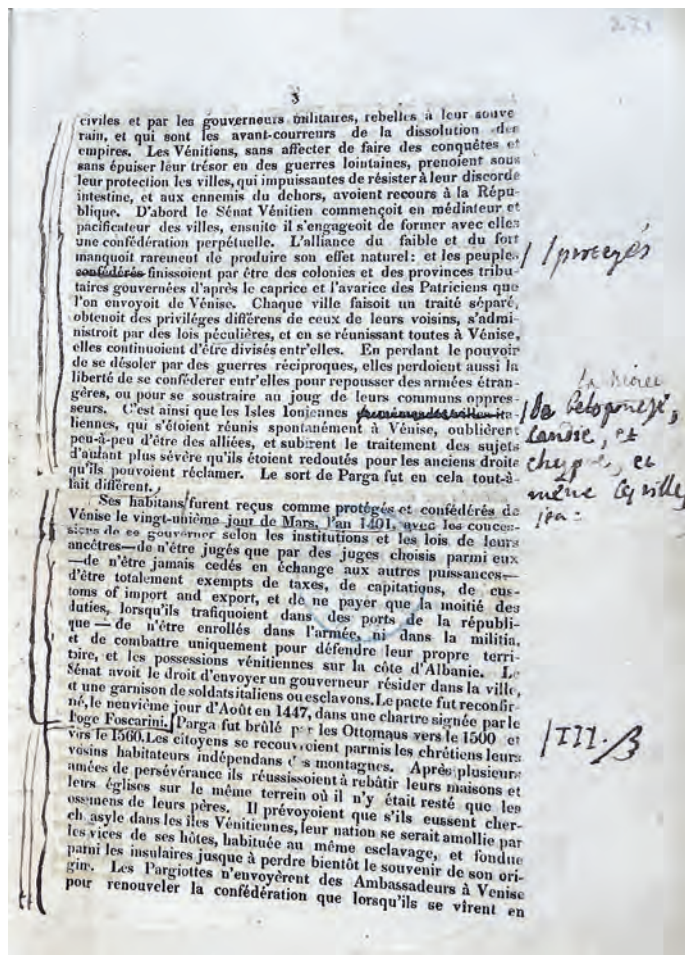 271
8
civiles et par les gouverneurs militaires, rebelles à leur souve
rain, et qui sont les avant-courreurs de la dissolution des
empires. Les Vénitiens, sans affecter de faire des conquêtes et
sans épuiser leur trésor en des guerres lointaines, prenoient sous
leur protection les villes, qui impuissantes de résister à leur discorde
intestine, et aux ennemis du dehors, avoient recours à la Répu-
blique. D'abord le Sénat Vénitien commençoit en médiateur et
pacificateur des villes, ensuite il s'engageoit de former avec elles
une confédération perpétuelle. L'alliance du faible et du fort
manquoit rarement de produire son effet naturel: et les peuples
confédérés finissoient par être des colonies et des provinces tribu-
taires gouvernées d'après le caprice et l'avarice des Patriciens que
l'on envoyoit de Vénise. Chaque ville faisoit un traité séparé,
obtenoit des priviléges différens de ceux de leurs voisins, s'admi-
nistroit par des lois péculières, et en se réunissant toutes à Vénise,
elles continuoient d'être divisés entr'elles. En perdant le pouvoir
de se désoler par des guerres réciproques, elles perdoient aussi la
liberté de se conféderer entr'elles pour repousser des armées étran-
gères, ou pour se soustraire au joug de leurs communs oppres-
seurs. C'est ainsi que les Isles Ioniennes
liennes, qui s'étoient réunis spontanément à Vénise, oublièrent
peu-à-peu d'être des alliées, et subirent le traitement des sujets
d'autant plus sévère qu'ils étoient redoutés pour les anciens droits
qu'ils pouvoient réclamer. Le sort de Parga fut en cela tout-à-
fait différent.
Ses habitans furent reçus comme protégés et confédérés de
Vénise le vingt-unième jour de Mars, l'an 1401, avec les conces-
sions de se gouverner selon les institutions et les lois de leurs
ancêtres—de n'être jugés que par des juges choisis parmi eux
—de n'être jamais cedés en échange aux autres puissances—
d'être totalement exempts de taxes, de capitations, de cus-
toms of import and export, et de ne payer que la moitié des
duties, lorsqu'ils trafiquoient dans des ports de la républi-
que — de n'être enrollés dans l'armée, ni dans la militia,
et de combattre uniquement pour défendre leur propre terri-
toire, et les possessions vénitiennes sur la côte d'Albanie. Le
Sénat avoit le droit d'envoyer un gouverneur résider dans la ville,
et une garnison de soldats italiens ou esclavons. Le pacte fut reconfir-
mé, le neuvième jour d'Août en 1447, dans une chartre signée par le
Doge Foscarini. Parga fut brûlé par les Ottomans vers le 1500 et
vers le 1560. Les citoyens se recouvroient parmis les chrétiens leurs
voisins habitateurs indépendans des montagnes. Après plusieurs
années de persévérance ils réussissoient à rebâtir leurs maisons et
leurs églises sur le même terrein où il n'y était resté que les
ossemens de leurs pères. Il prévoyoient que s'ils eussent cher-
ché asyle dans les îles Vénitiennes, leur nation se serait amollie par
les vices de ses hôtes, habituée au même esclavage, et fondue
parmi les insulaires jusque à perdre bientôt le souvenir de son ori-
gine. Les Pargiottes n'envoyèrent des Ambassadeurs à Venise
pour renouveler la confédération que lorsqu'ils se vîrent en
/ /protégés
la Morée
/le Peloponese,
Candie, et
chypre, et
même les villes
ita=
/III. B